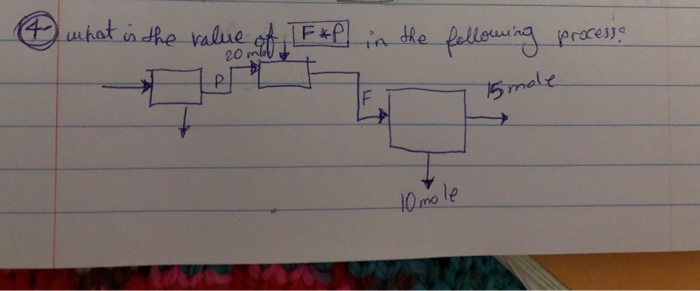 4- what is the value of F*P in the following process?
20 mole
P
F
15 mole
10 mole